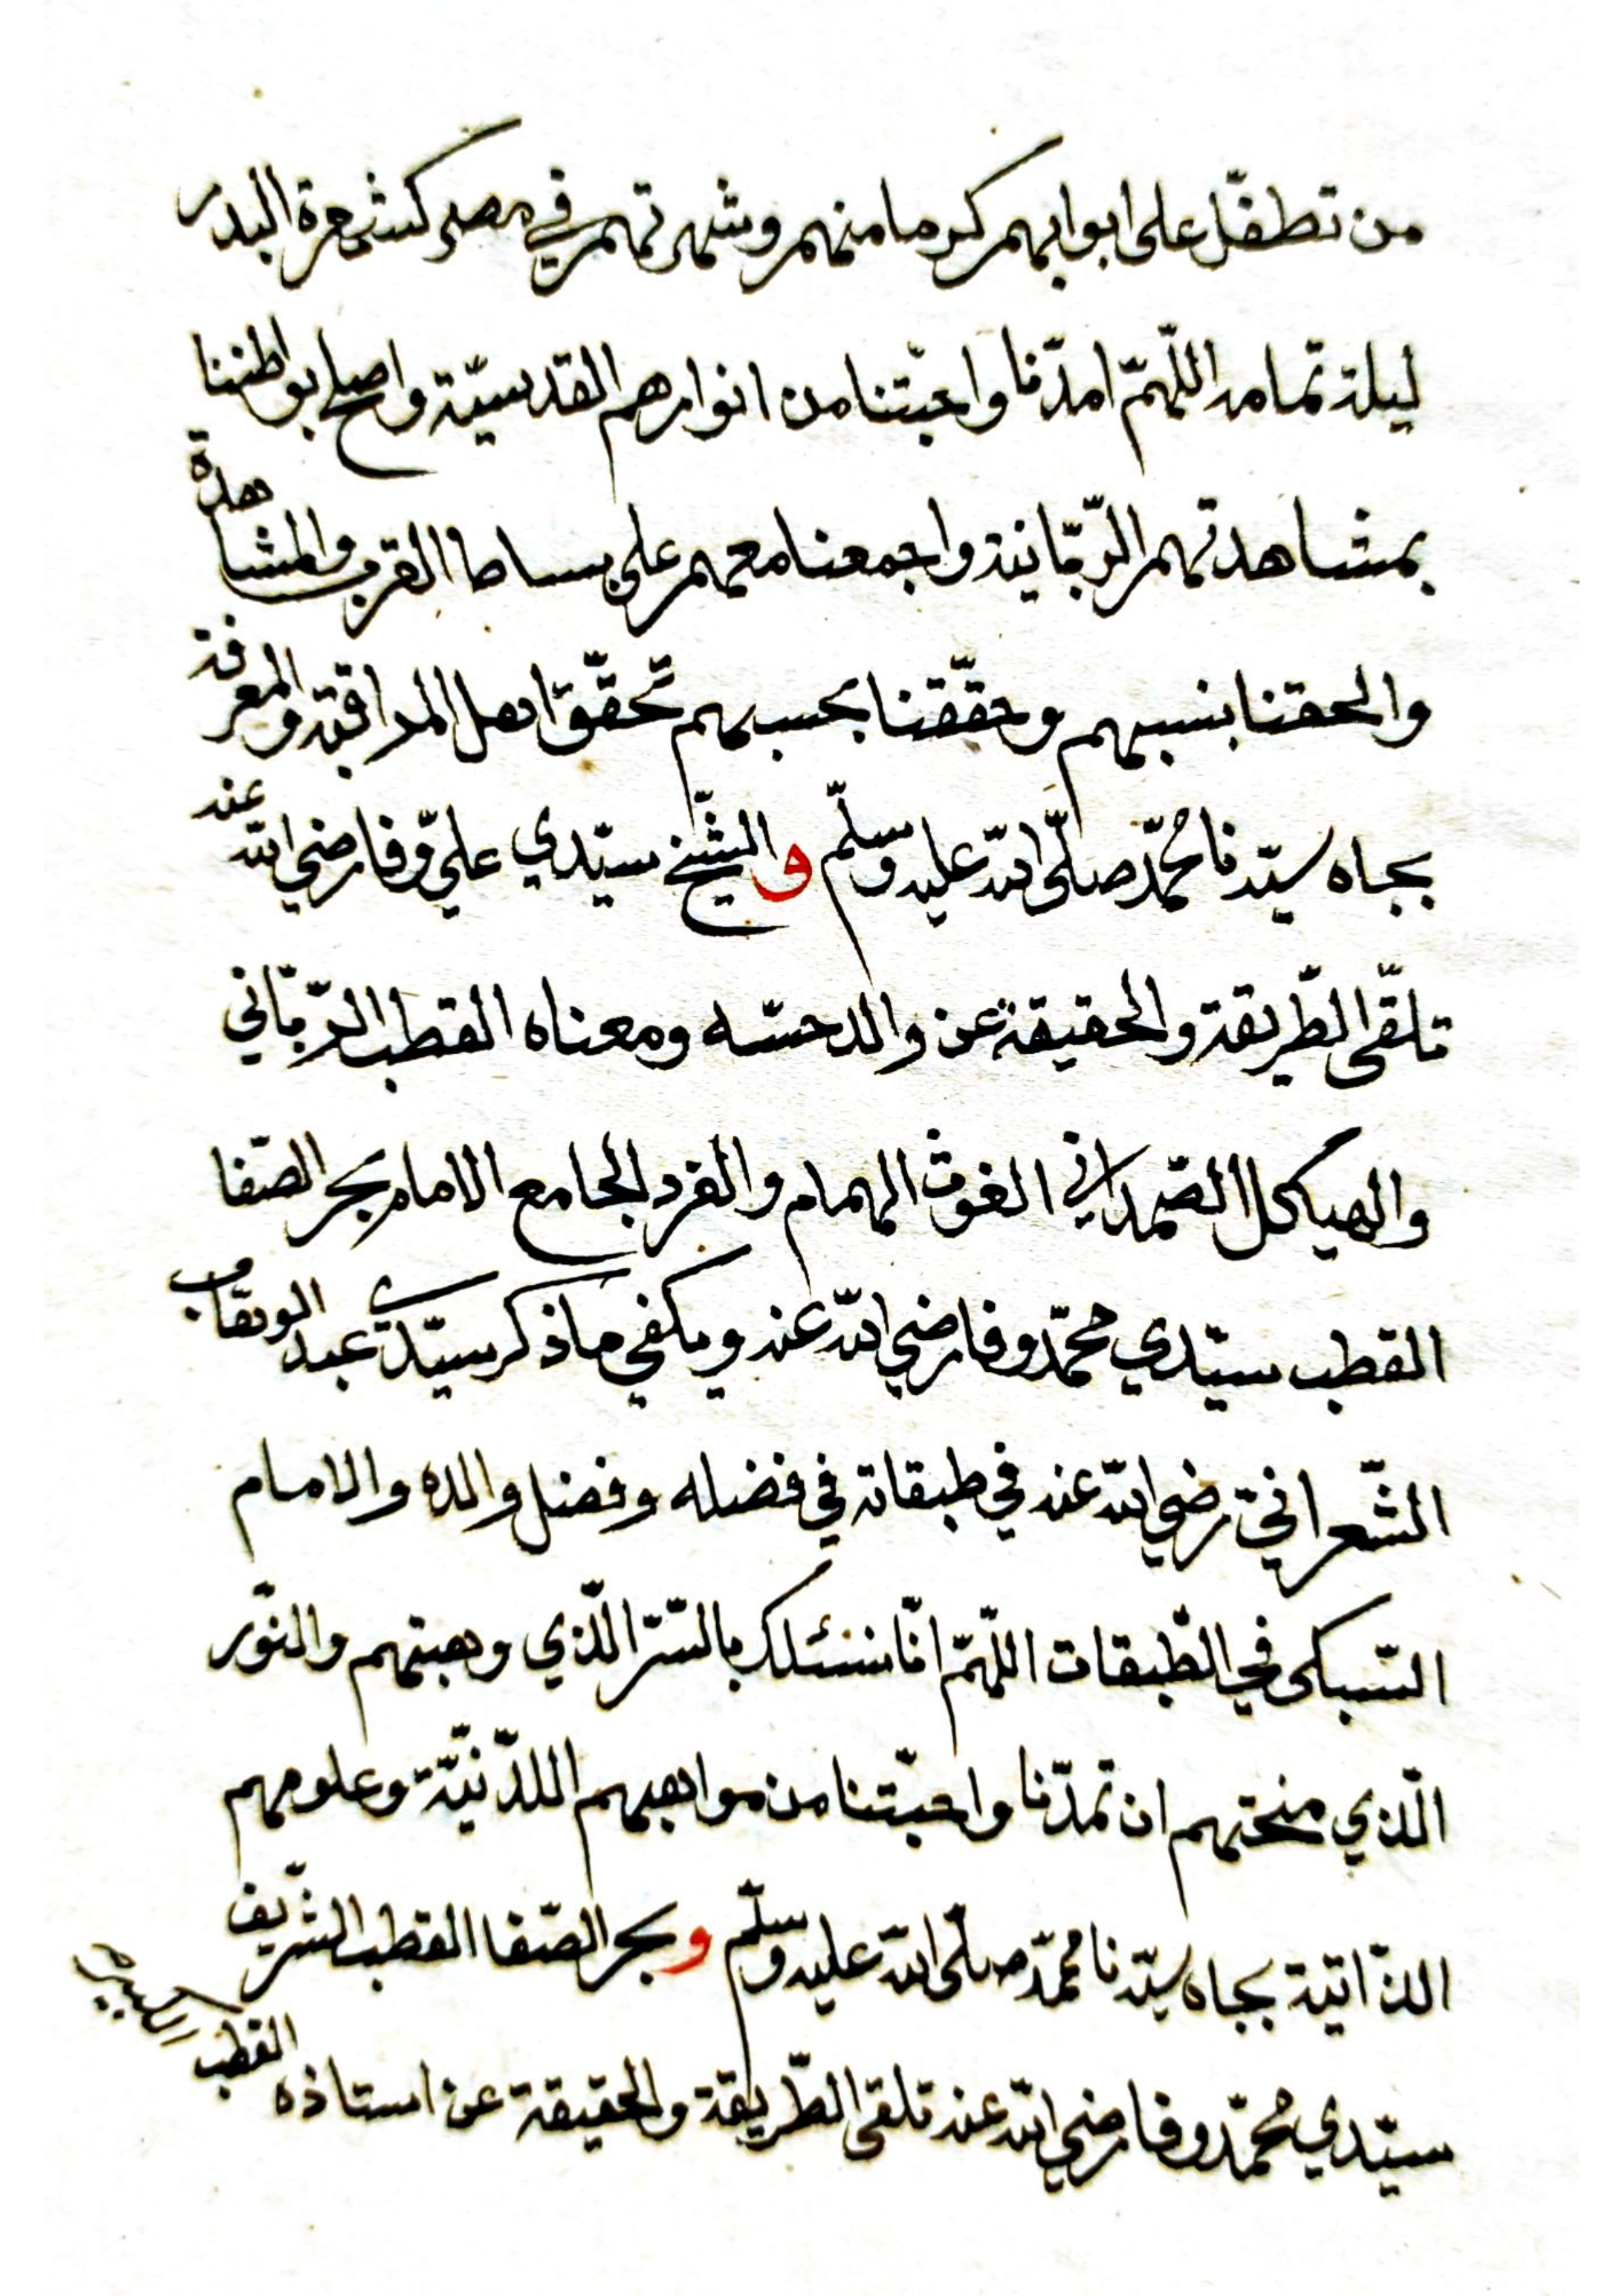 من تطفّل على ابوابهم كرما منهم وشهرتهم في مصر كشهرة البدر
ليلة تمامه اللّهمّ امدّنا واحبّتنا من انوارهم القدسيّة واصلح بواطننا
بمشاهدتهم الرّبّانية واجمعنا معهم على بساط القرب والمشاهدة
والحقنا بنسبهم وحقّقنا بحسبهم تحقّق اهل المراقبة والمعرفة
بجاه سيّدنا محُمّد صلّى الله عليه وسلّم والشّيخ سيّدي عليّ وفا رضي الله عنه
تلقّى الطّريقة والحقيقة عن والد حسّه ومعناه القطب الرّبّاني
والهيكل الصّمداني الغوث الهمام والفرد الجامع الامام بحر الصّفا
القطب سيّدي محمّد وفا رضي الله عنه ويكفي ما ذكر سيّدي عبد الوهّاب
الشّعراني رضي الله عنه في طبقاته في فضله وفضل والده والامام
السّبكى في الطّبقات اللّهمّ انّا نسئلك بالسّرّ الّذي وهبتهم والنّور
الّذي منحتهم ان تمدّنا واحبّتنا من مواهبهم اللدّنيّة وعلومهم
الذّاتيّة بجاه سيّدنا محمّد صلّى الله عليه وسلّم وبحر الصّفا القطب الشّريف
سيّدي محُمّد وفا رضي الله عنه تلقى الطّريقة والحقيقة عن استاذه القطب